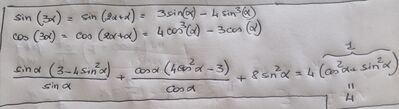 sin (3α) = sin (2α+α) = 3sin(α) − 4sin³(α)
cos (3α) = cos (2α+α) = 4cos³(α) − 3cos(α)
sinα (3−4sin²α) / sinα + cosα (4cos²α−3) / cosα + 8sin²α = 4 (cos²α + sin²α)
1
= 4